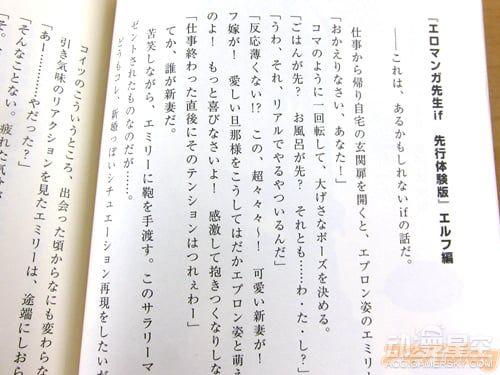 『エロマンガ先生if　先行体験版』エルフ編
――これは、あるかもしれないifの話だ。
仕事から帰り自宅の玄関扉を開くと、エプロン姿のエミリ
「おかえりなさい、あなた！」
コマのように一回転して、大げさなポーズを決める。
「ごはんが先？　お風呂が先？　それとも……わ・た・し？」
「うわ、それ、リアルでやるやついるんだ」
「反応薄くない!?　この、超々々〜！　可愛い新妻が！
フ嫁が！　愛しい旦那様をこうしてはだかエプロン姿と萌え
のよ！　もっと喜びなさいよ！　感激して抱きつくなりしな
「仕事終わった直後にそのテンションはつれぇわー」
てか、誰が新妻だ。
苦笑しながら、エミリーに鞄を手渡す。このサラリーマ
ゼントされたものなのだが……。
どうもコレ、新婚っぽいシチュエーション再現をしたいが
コイツのこういうところ、出会った頃からなにも変わらな
引き気味のリアクションを見たエミリーは、途端にしおら
「あー…………やだった？」
「そんなことない。疲れた気分が
GAMERSKY.COM